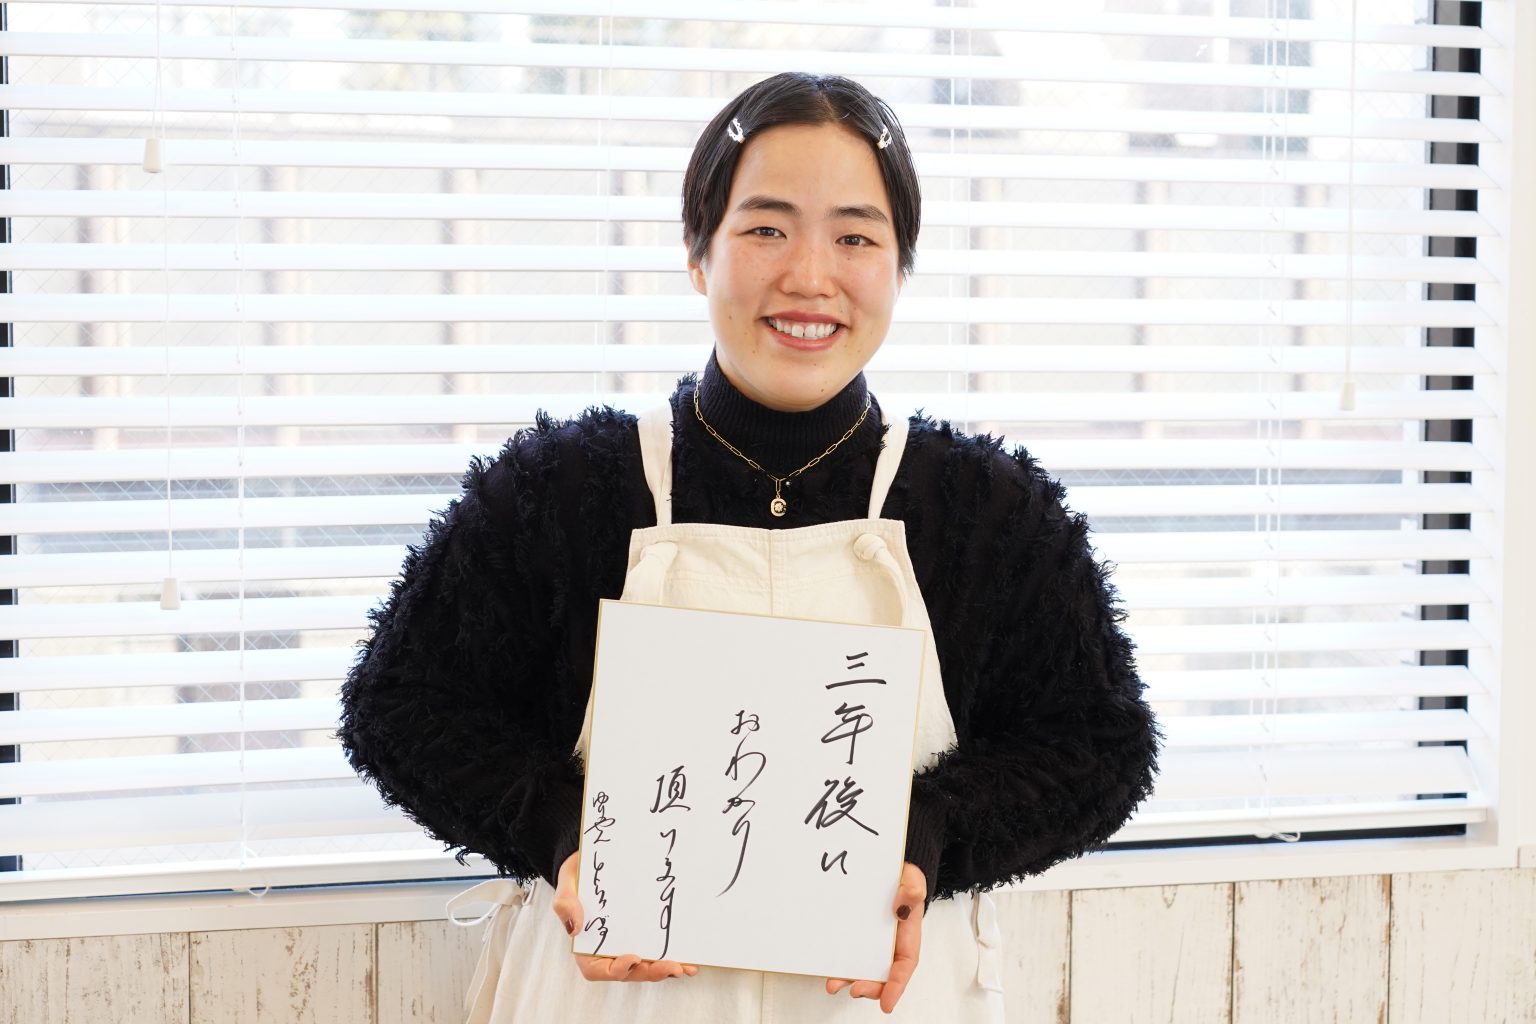 三年後に
おわかり
頂けます